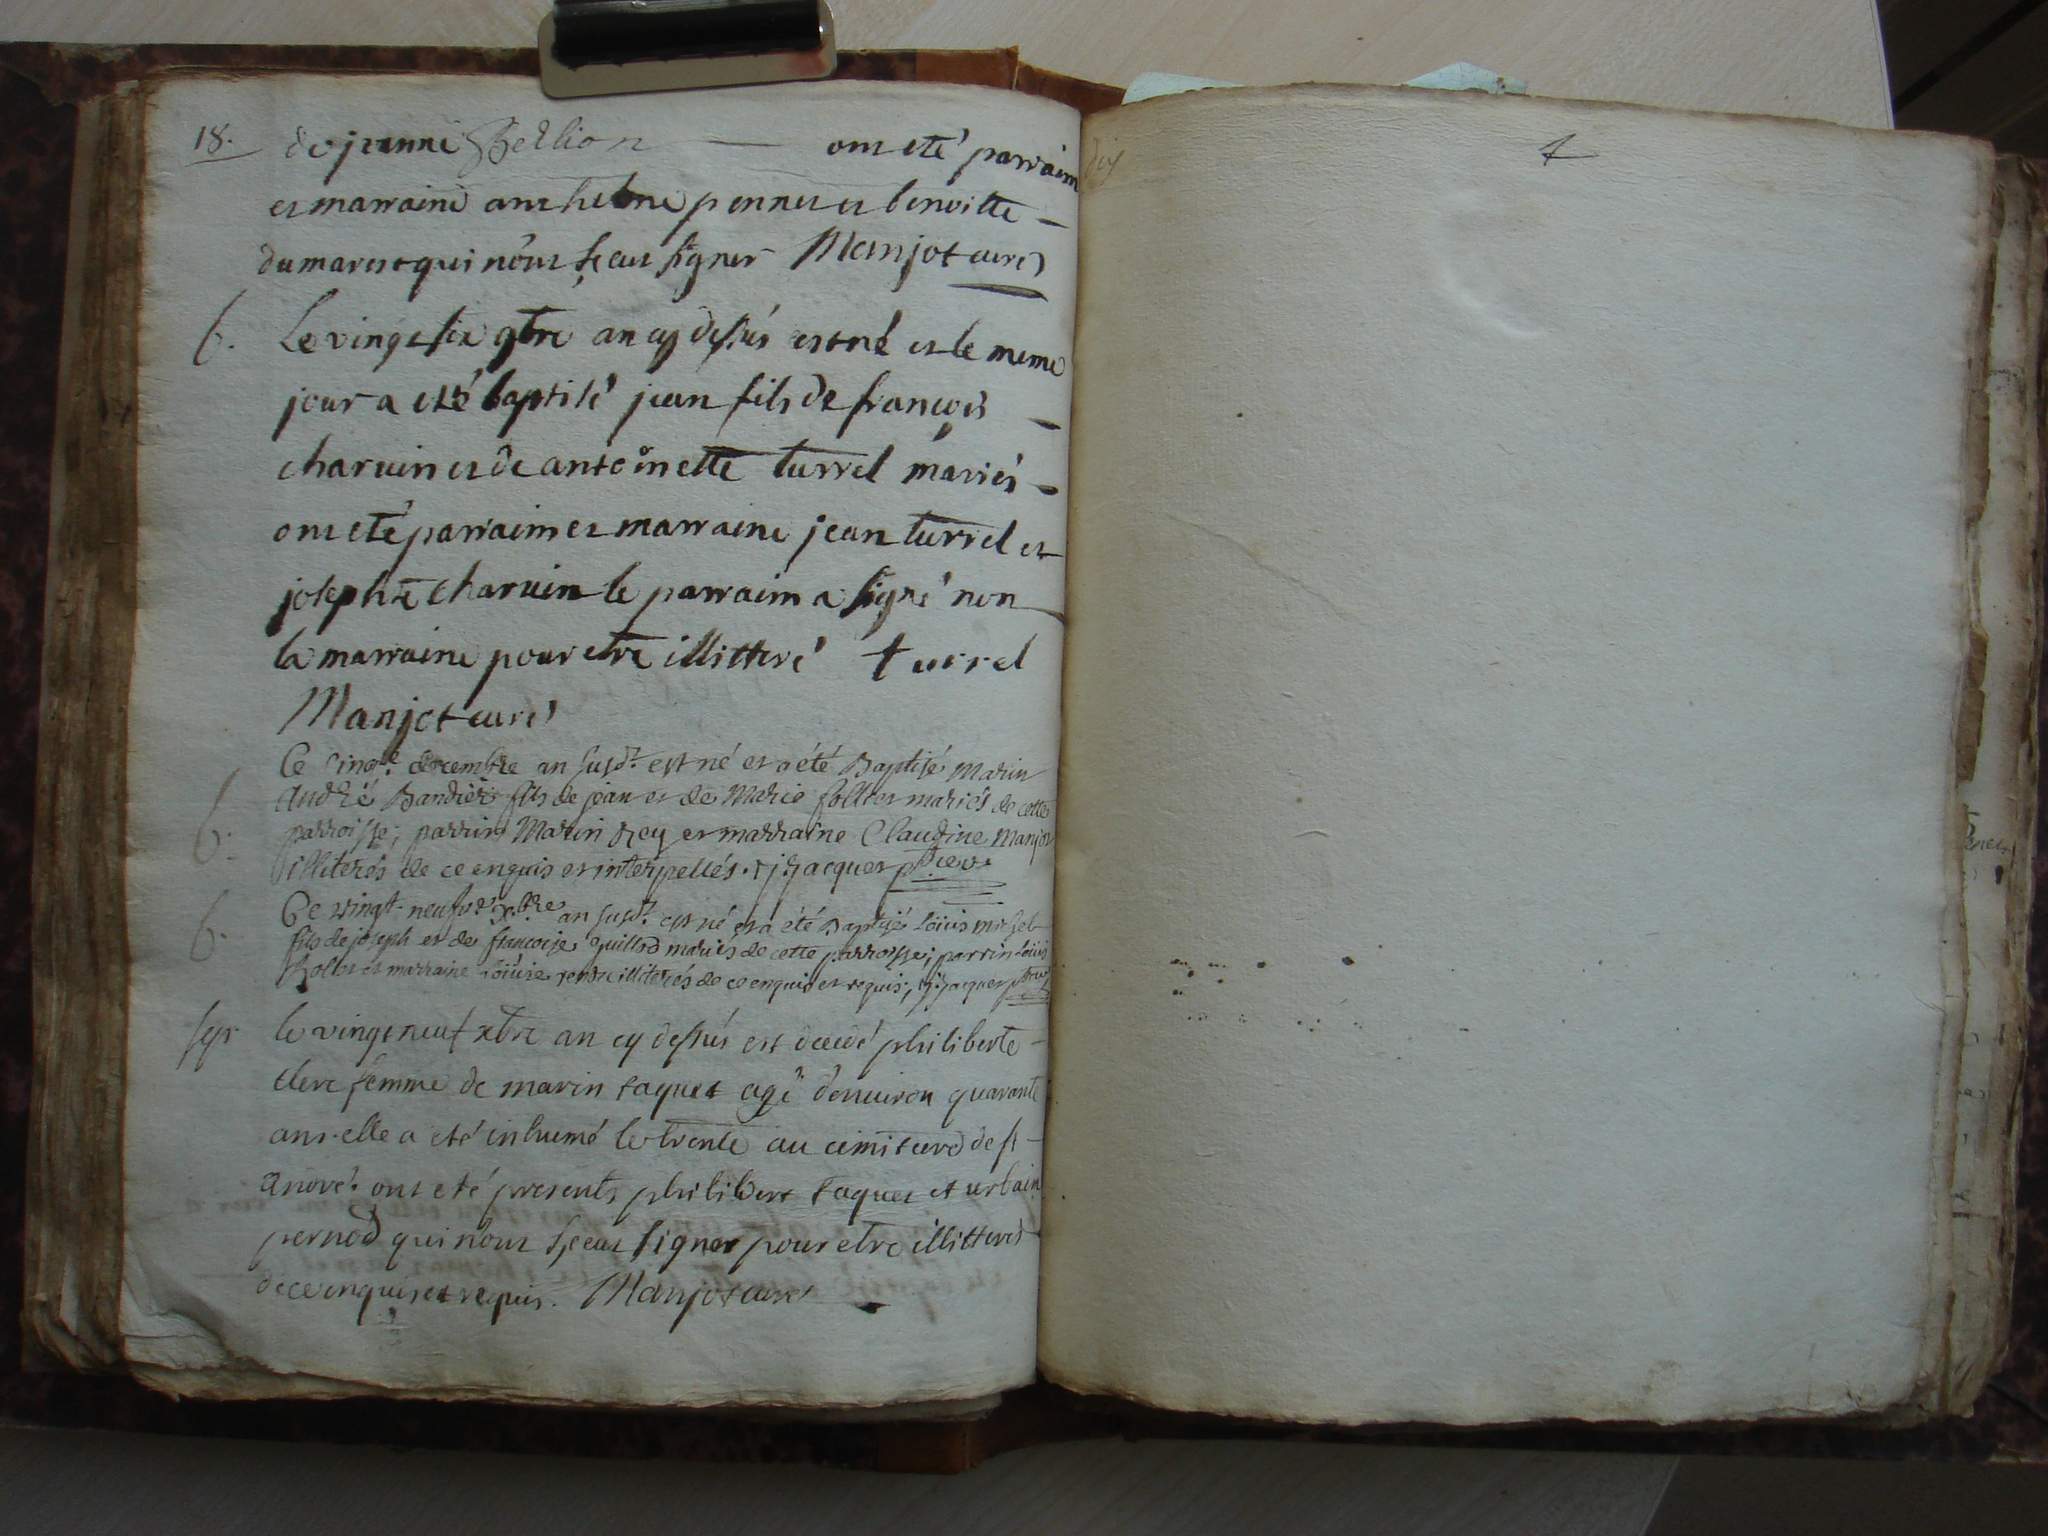 18. de jeanne Bellion — ont eté parraim
et marraine anthelme pennet et benoitte
dumarest qui n'ont sçeut signer Manjot curé
b. Le vingt six 9bre an cy dessus est né et le meme
jour a eté baptisé jean fils de françois
charuin et de antoinette turrel mariés
ont eté parraim et marraine jean turrel et
josephte charuin le parraim a signé non
la marraine pour etre illitteré turrel
Manjot curé
Ce cinqe. decembre an susdt. est né et a été Baptisé Marin
André Bandier fils de jean et de Marie follier mariés de cette
b. parroisse; parrin Marin Rey et marraine Claudine Manjot
illiterés de ce enquis et interpellés. j: jacquer ptre vre
b. Ce vingt-neufve xbre an susdt. est né et a été Baptisé Loüis michel
fils de joseph et de françoise guillod mariés de cette parroisse; parrin Loüis
et marraine Loüise illiterés de ce enquis et requis; j: jacquer ptre
sep. le vingt neuf xbre an cy dessus est decedé philiberte
clerc femme de marin taquet agé denuiron quarante
ans. elle a eté inhumé le trente au cimitiere de st
André. ont eté presents philibert taquet et urbain
pernod qui n'ont sçeut signer pour etre illitterés
de ce enquis et requis. Manjot curé